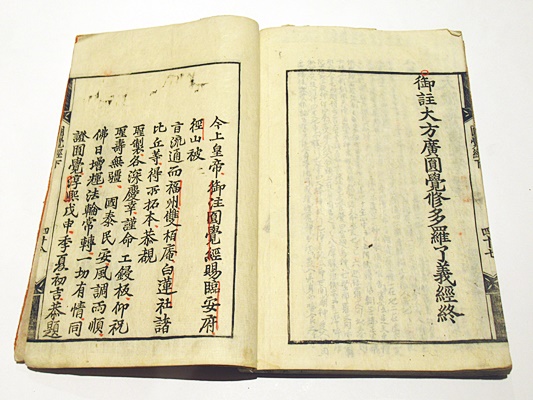 御註大方廣圓覺修多羅了義經終
四十七
今上皇帝御注圓覺經賜臨安府
徑山被
旨流通而福州雙栢庵白蓮社諸
比丘等得所拓本恭覩
聖製各深慶幸謹命工鋟板仰祝
聖壽無疆 國泰民安風調雨順
佛日增輝法輪常轉一切有情同
證圓覺淳熙戊申季夏初吉恭題
圓覺經下
四十八